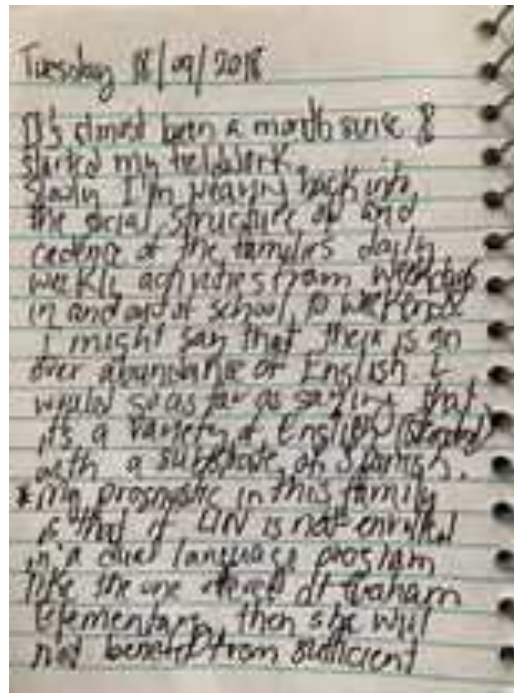 Tuesday 18/09/2018
It's almost been a month since I
started my fieldwork.
Slowly I'm weaving back into
the social structure of and
cadence of the families daily
weekly activities from weekdays
in and out of school, to weekends
I might say that there is an
over abundance of English. I
would go as far as saying that
it's a variety of English (standard)
with a substrate of Spanish.
* My prognostic in this family
is that if LIN is not enrolled
in a dual language program
like the one offered at Graham
Elementary, then she will
not benefit from sufficient